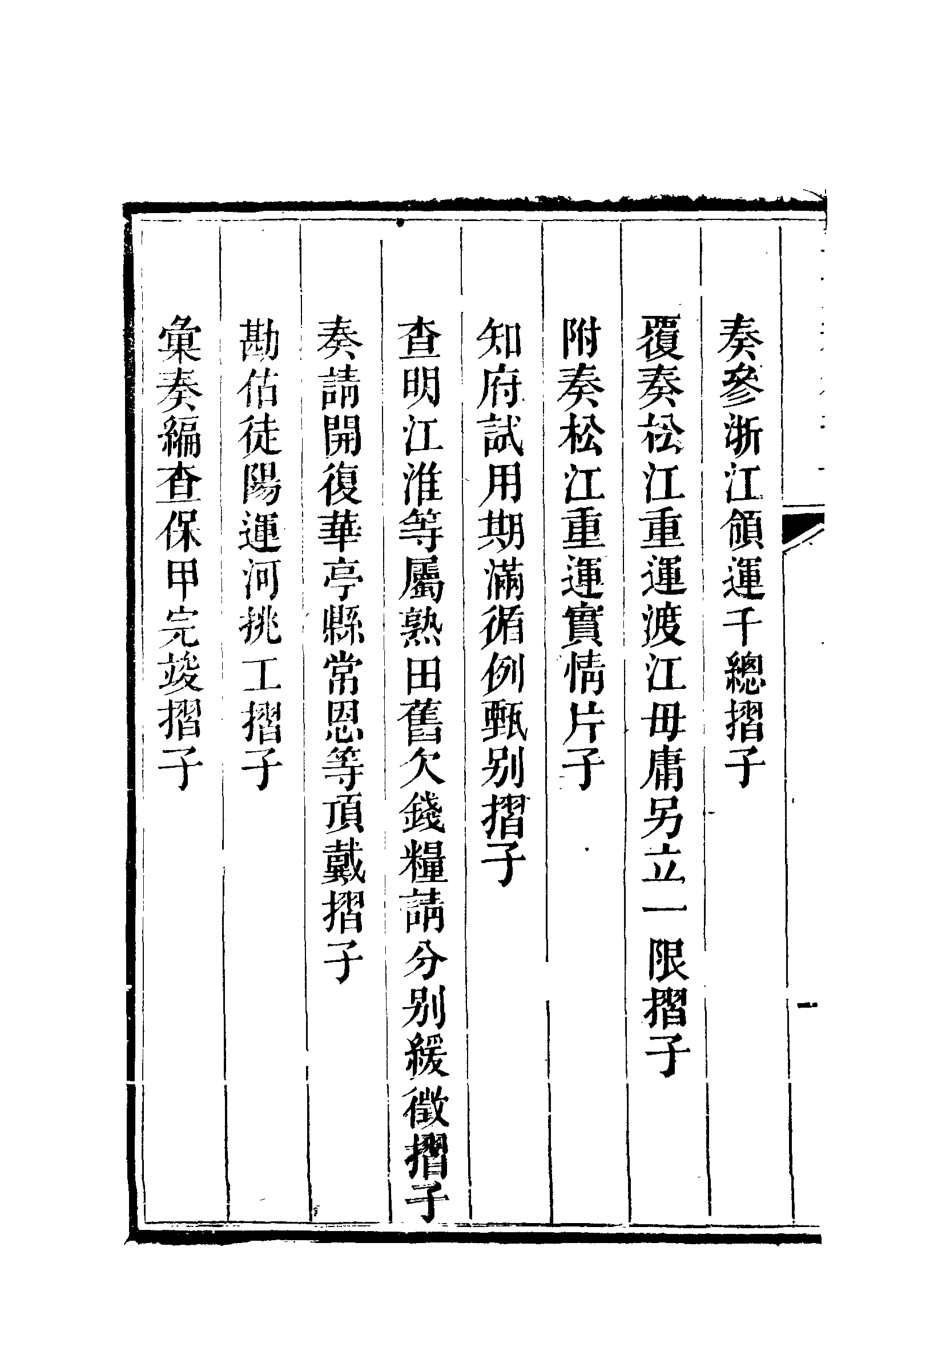 奏參浙江領運千總摺子
覆奏松江重運渡江毋庸另立一限摺子
附奏松江重運實情片子
知府試用期滿循例甄别摺子
查明江淮等屬熟田舊欠錢糧請分别緩徵摺子
奏請開復華亭縣常恩等頂戴摺子
勘估徒陽運河挑工摺子
彙奏編查保甲完竣摺子